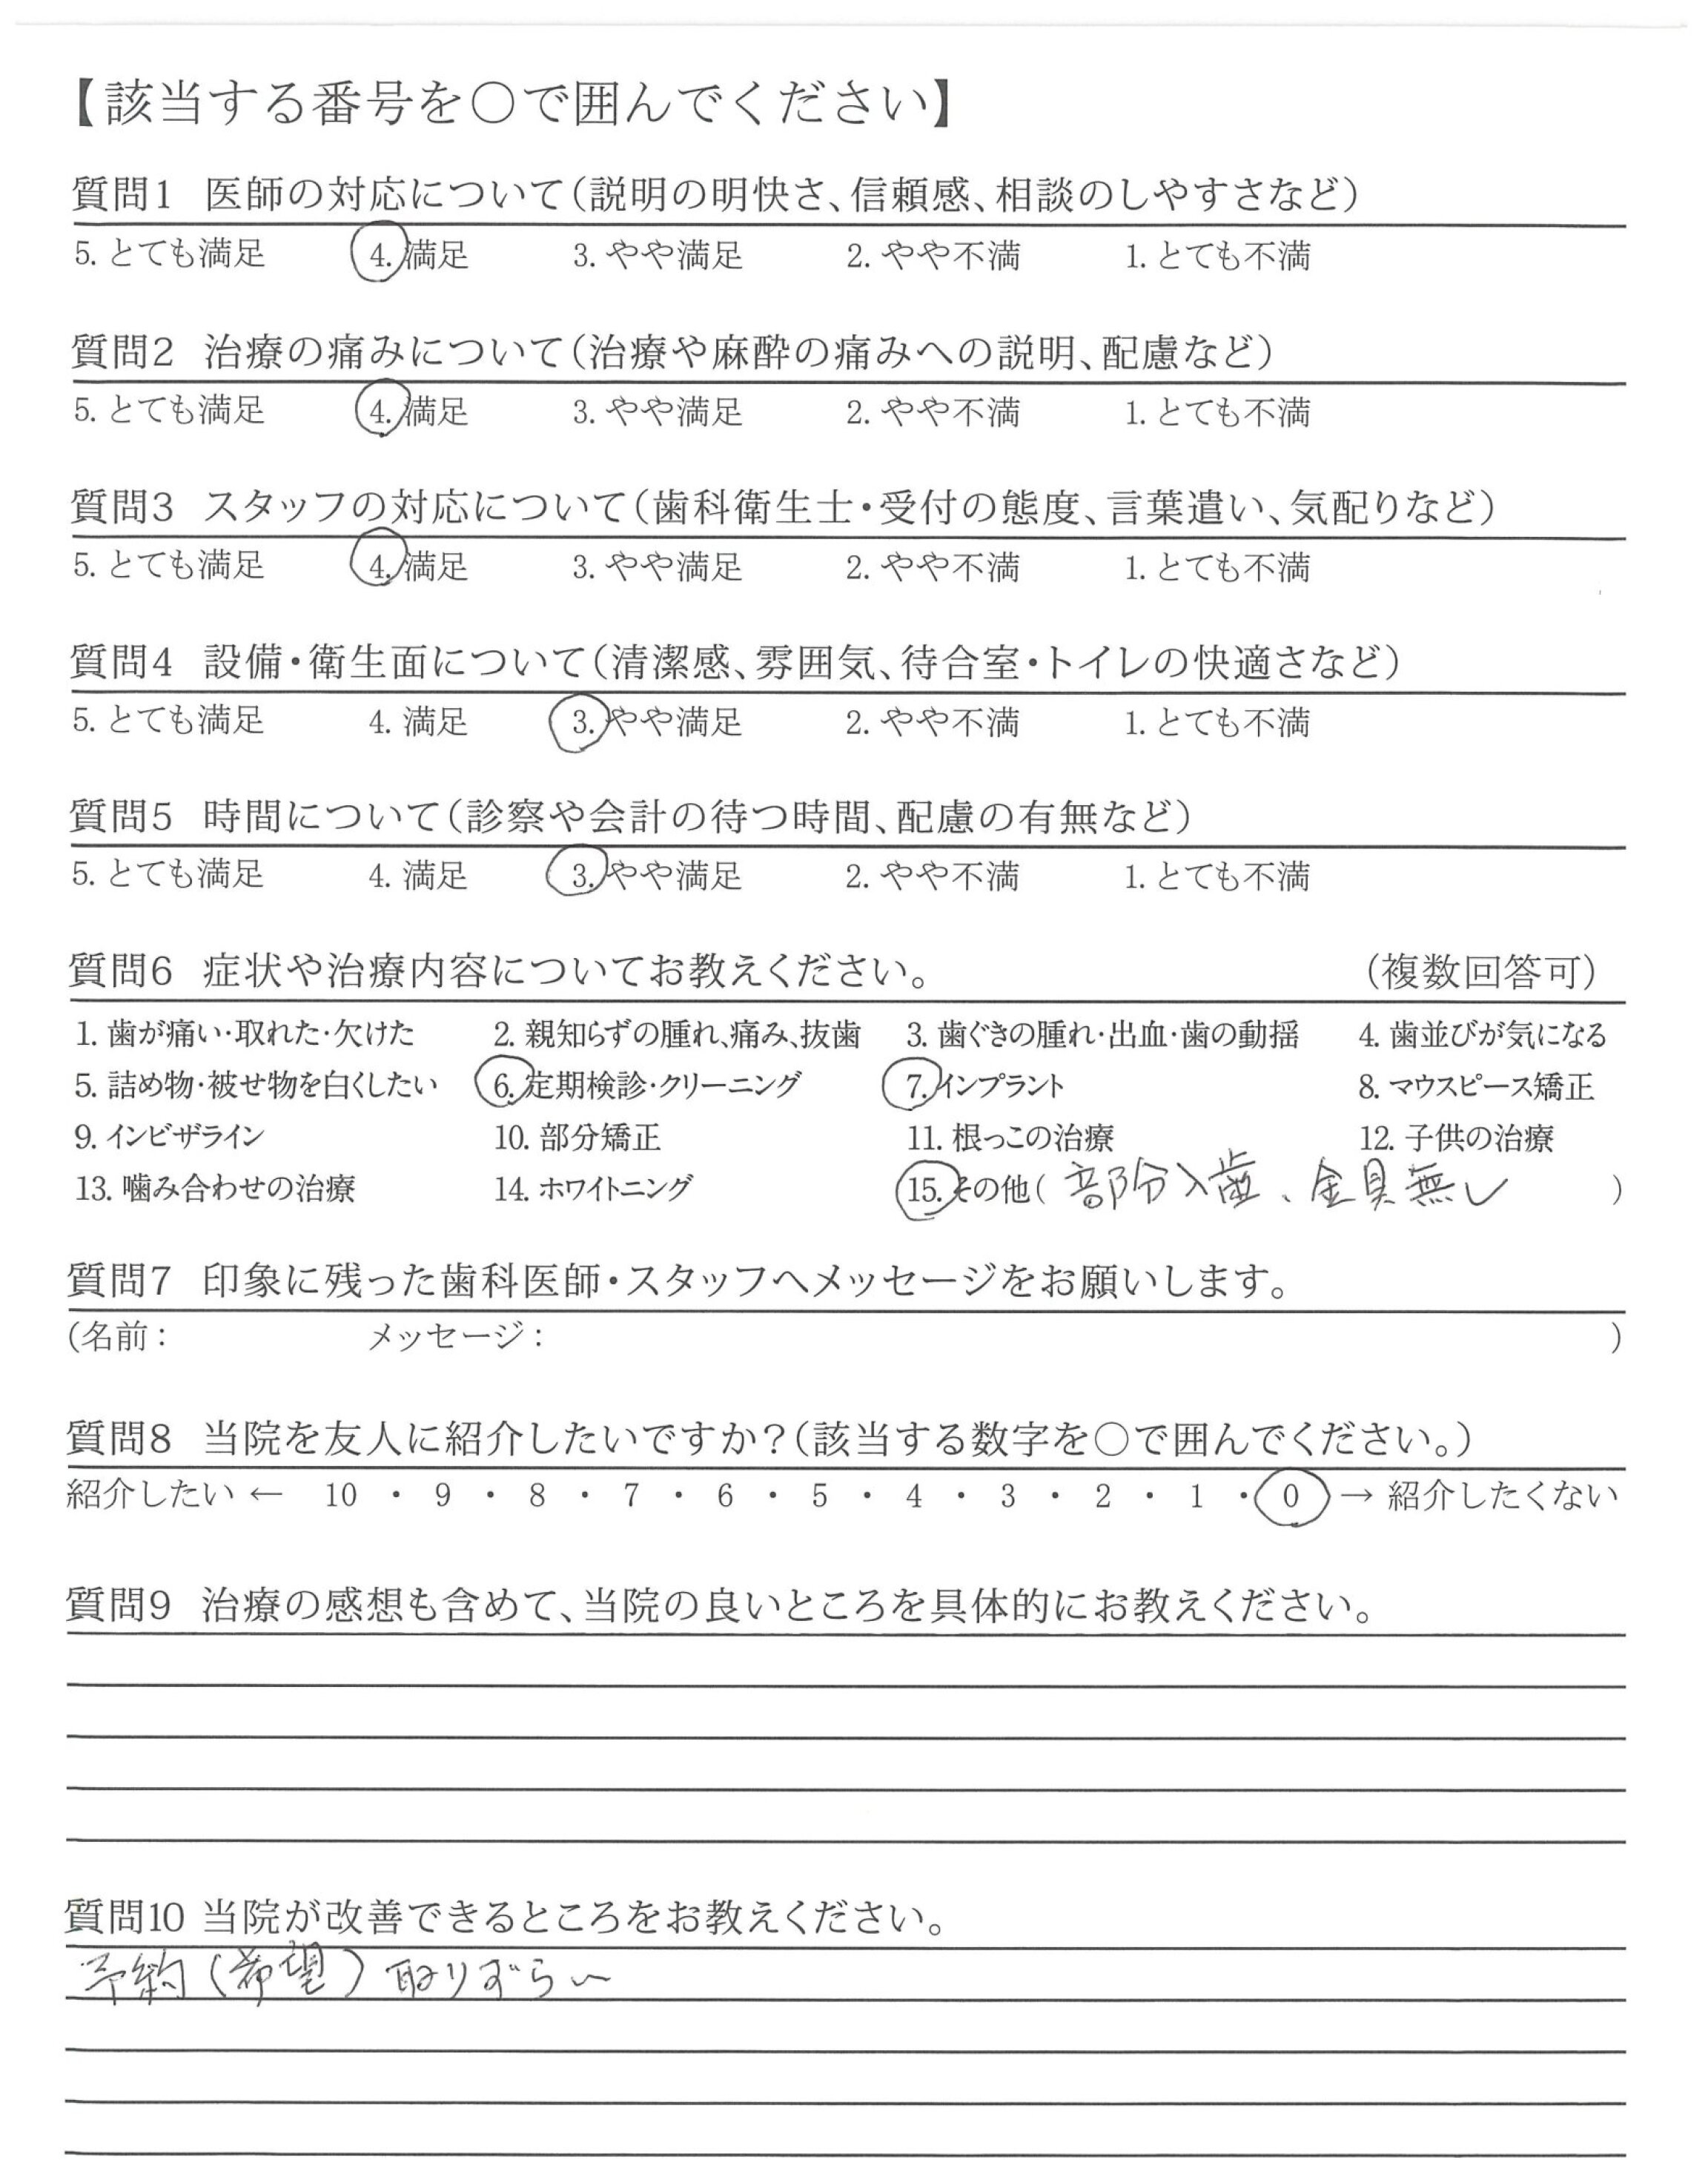 【該当する番号を○で囲んでください】
質問1 医師の対応について(説明の明快さ、信頼感、相談のしやすさなど)
5. とても満足 4. 満足 3. やや満足 2. やや不満 1. とても不満
質問2 治療の痛みについて(治療や麻酔の痛みへの説明、配慮など)
5. とても満足 4. 満足 3. やや満足 2. やや不満 1. とても不満
質問3 スタッフの対応について(歯科衛生士・受付の態度、言葉遣い、気配りなど)
5. とても満足 4. 満足 3. やや満足 2. やや不満 1. とても不満
質問4 設備・衛生面について(清潔感、雰囲気、待合室・トイレの快適さなど)
5. とても満足 4. 満足 3. やや満足 2. やや不満 1. とても不満
質問5 時間について(診察や会計の待つ時間、配慮の有無など)
5. とても満足 4. 満足 3. やや満足 2. やや不満 1. とても不満
質問6 症状や治療内容についてお教えください。 (複数回答可)
1. 歯が痛い・取れた・欠けた 2. 親知らずの腫れ、痛み、抜歯 3. 歯ぐきの腫れ・出血・歯の動揺 4. 歯並びが気になる
5. 詰め物・被せ物を白くしたい 6. 定期検診・クリーニング 7. インプラント 8. マウスピース矯正
9. インビザライン 10. 部分矯正 11. 根っこの治療 12. 子供の治療
13. 噛み合わせの治療 14. ホワイトニング 15. その他( 部分入歯、金具無し )
質問7 印象に残った歯科医師・スタッフへメッセージをお願いします。
(名前: メッセージ: )
質問8 当院を友人に紹介したいですか?(該当する数字を○で囲んでください。)
紹介したい ← 10 ・ 9 ・ 8 ・ 7 ・ 6 ・ 5 ・ 4 ・ 3 ・ 2 ・ 1 ・ 0 → 紹介したくない
質問9 治療の感想も含めて、当院の良いところを具体的にお教えください。
質問10 当院が改善できるところをお教えください。
予約(希望)取りずらい